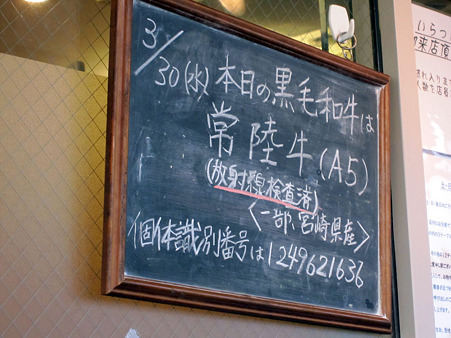 3/30(水)本日の黒毛和牛は
常陸牛(A5)
(放射線検査済)
<一部、宮崎県産>
個体識別番号は1249621636
いらっ